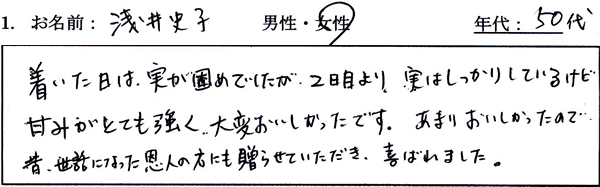 1. お名前：浅井史子 男性・女性 年代：50代
着いた日は、実が固めでしたが、2日目より、実はしっかりしているけど
甘みがとても強く、大変おいしかったです。あまりおいしかったので
昔、世話になった恩人の方にも贈らせていただき、喜ばれました。